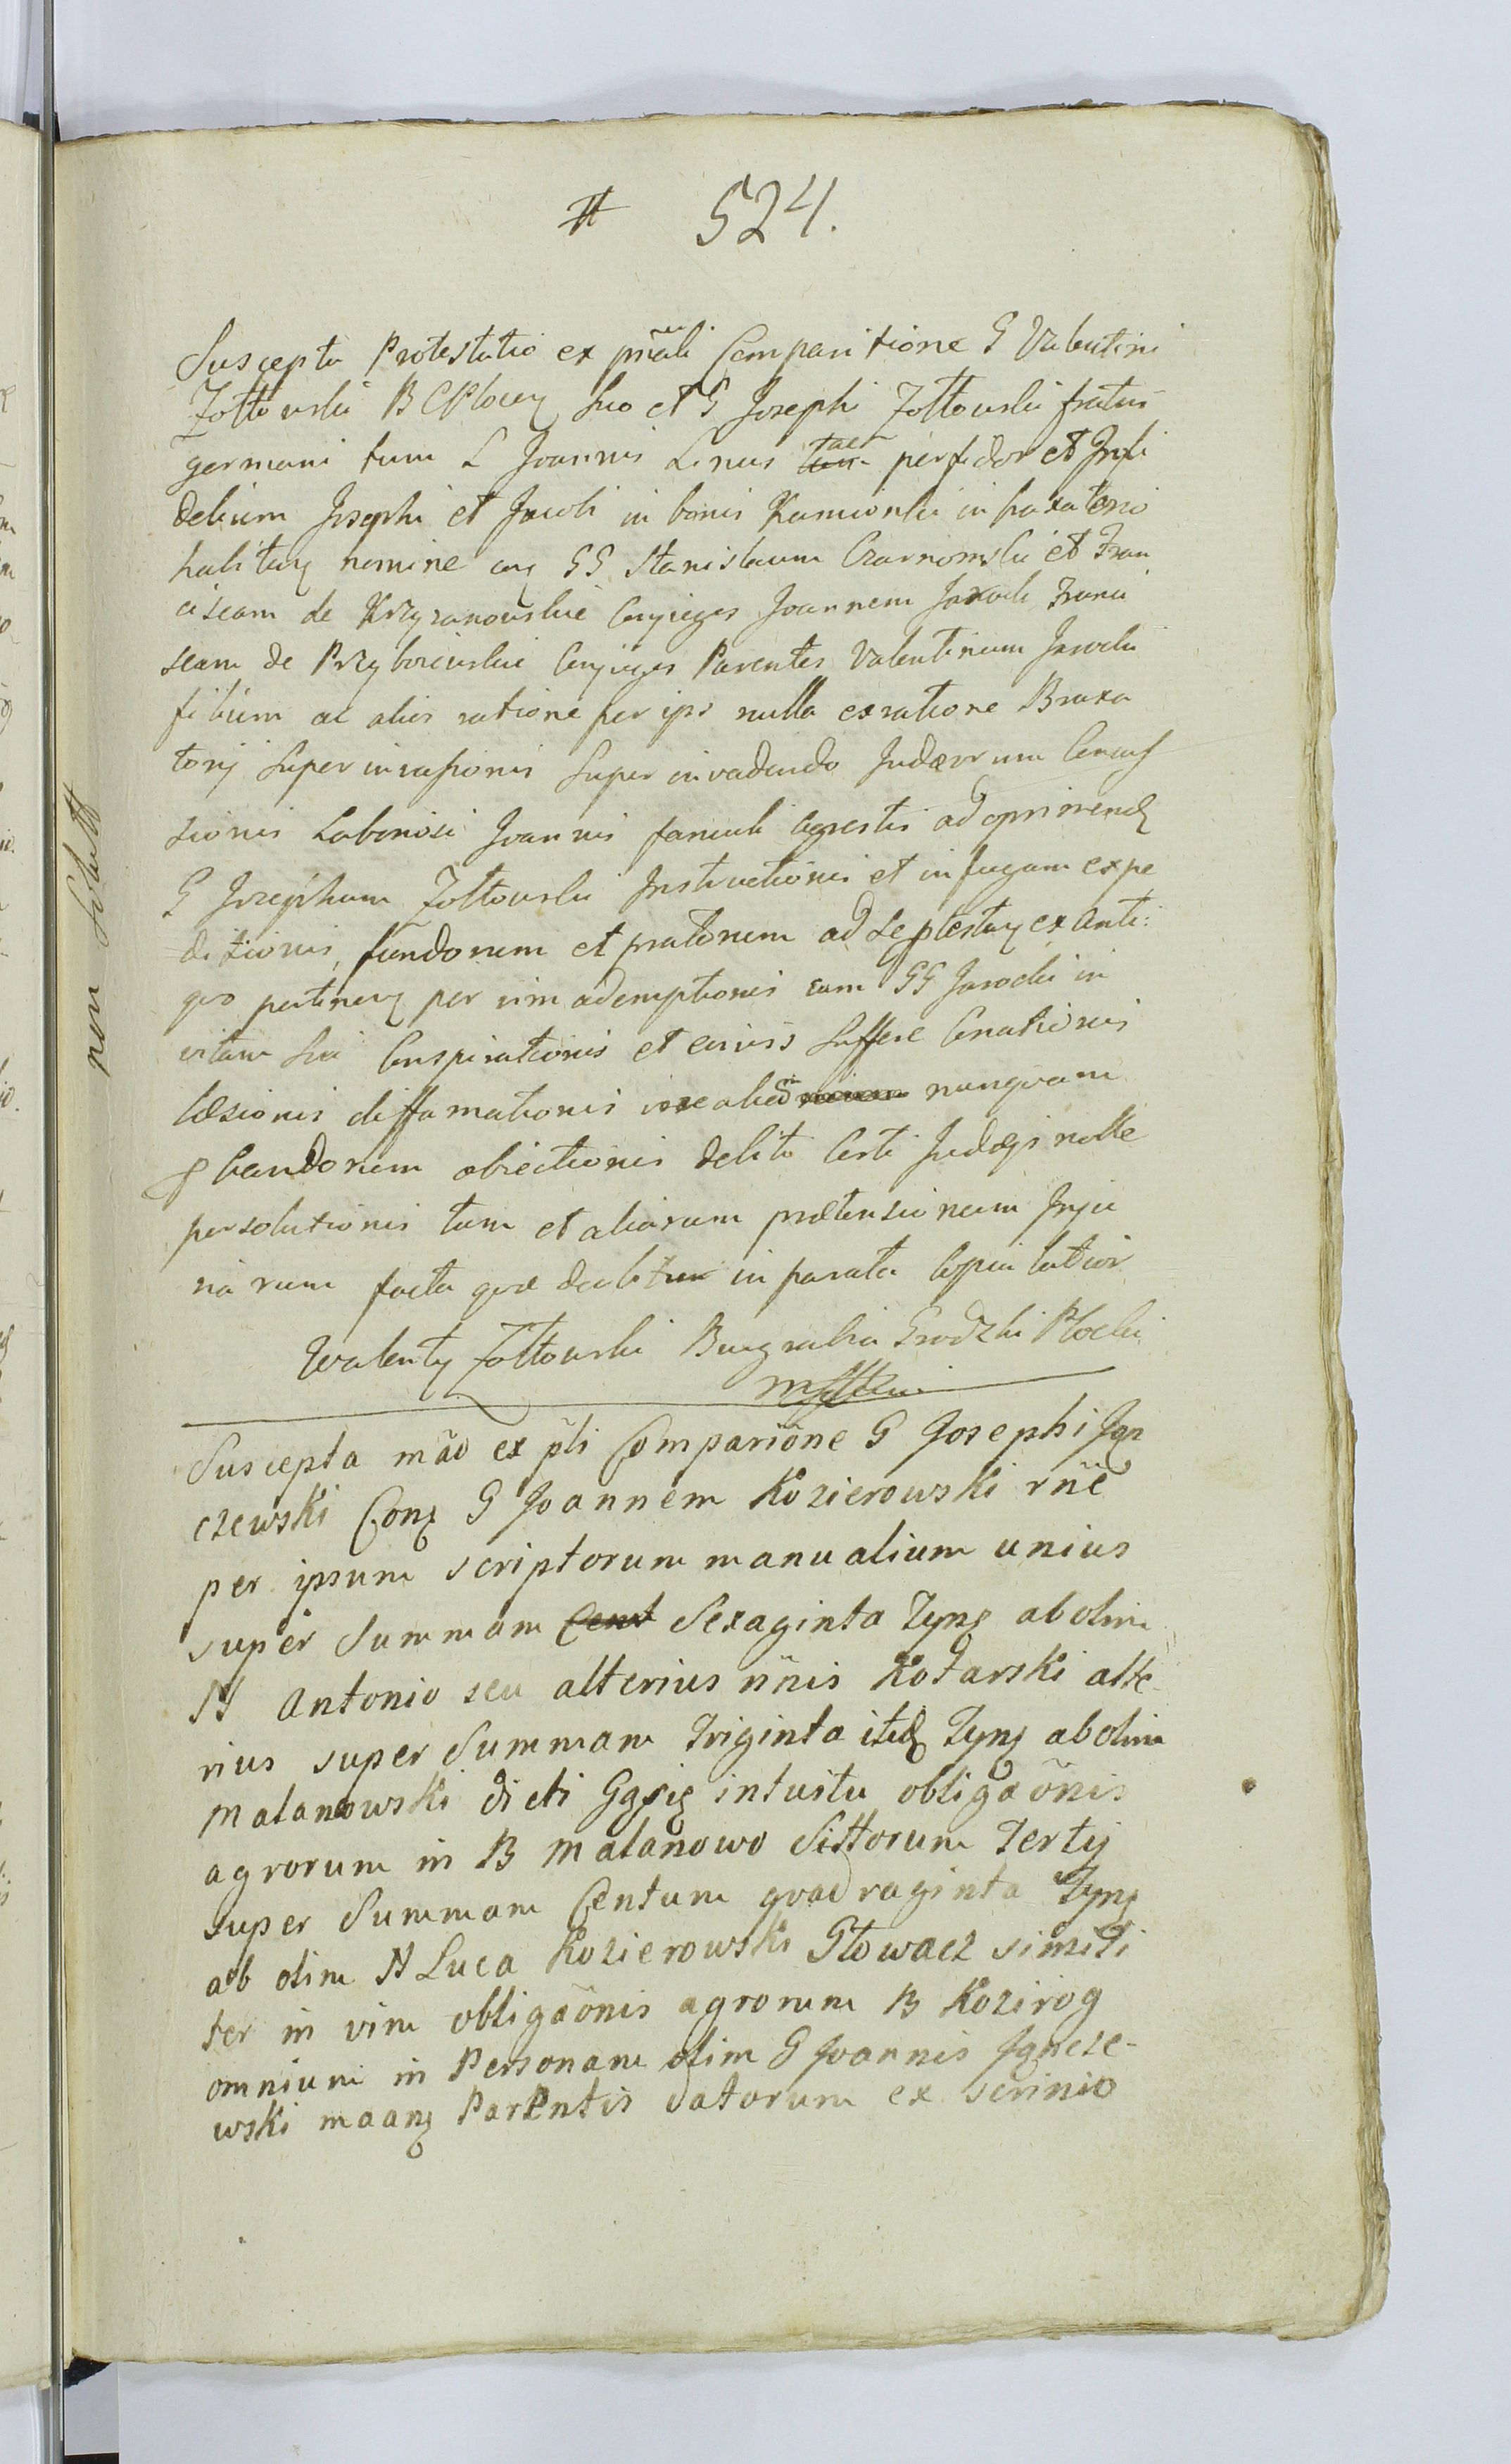 # 524.
Suscepta Protestatio ex pñali Comparitione G Valentini
Zołtowski B C Plocen Suo et G Josephi Zołtowski fratris
germani tum L Joannis Linus tum taer perfidor et Infi
delium Josephi et Jacobi in bonis Kamionki in braxatorio
habitan nomine cin GG Stanislaum Czarnomski et Fran
ciscam de Krzyzanowskie Conjuges Joannem Jaroch Franci
scam de Przyborowskie Conjuges Parentes Valentinum Jarocki
filium ac alios ratione per ips nulla ex ratione Braxa
torij Super invasionis Super invadendo Judæorum Concus
sionis Laboriosi Joannis famuli agrestis ad oprimend
G Josephum Zołtowski Instructionis et in fugam expe
ditionis, fundorum et pratorum ad Septestary ex anti:
quo pertinen per vim ademptionis cum GG Jarocki in
vitam Sui Conspirationis et eius Suffere Conationis
læsionis diffamationis nunquam
pbandorum obiectionis debiti Certi Judæis nolle
persolutionis tum et aliarum prætensionum Inju
riarum facta quæ deditur in parata Copia latior
Walenty Zołtowski Burgrabia Grodzki Płocki
mpp
Suscepta mão ex pľi Comparitõne G Josephi Jgn
czewski Conq G Joannem Kozierowski rñe
per ipsum scriptorum manualium unius
super Summam Cent Sexaginta Tynf ab olim
N Antonio seu alterius nñis Kotarski alte
rius super Summam Triginta itid Tynf ab olim
Malanowski dicti Ggsię intuitu obligaõnis
agrorum in B Malanowo Sittorum Tertij
super Summam Centum quadraginta Tynf
ab olim N Luca Kozierowski Głowacz simili
ter in vim obligaõnis agrorum B Kozirog
omnium in Personam olim G Joannis Jgncze-
wski maanq Parentis datorum ex scrinio
non Soluit